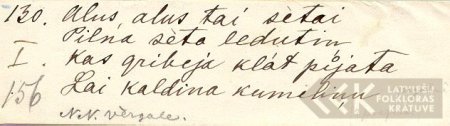 130. Alus, alus tai sētai
I. Pilna sēta ledutin
Kas gribeja klāt pijata
156 Lai kaldina kumeliņu
N.N. Vērgale.
LATVIEŠU
FOLKLORAS
KRĀTUVE